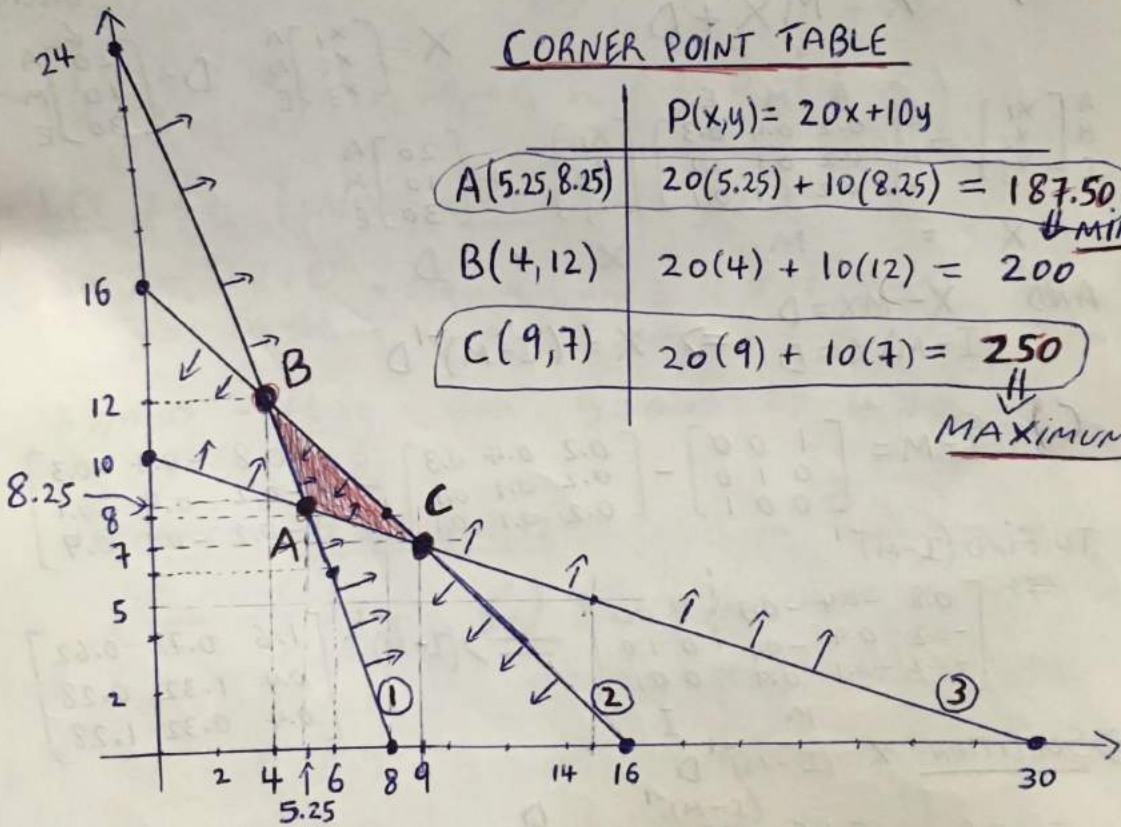 CORNER POINT TABLE
P(x,y) = 20x+10y
A(5.25, 8.25) 20(5.25) + 10(8.25) = 187.50
B(4,12) 20(4) + 10(12) = 200
C(9,7) 20(9) + 10(7) = 250
MAXIMUM
24
16
12
10
8.25
8
7
5
2
B
A
C
①
②
③
2 4 6 8 9 14 16 30
5.25